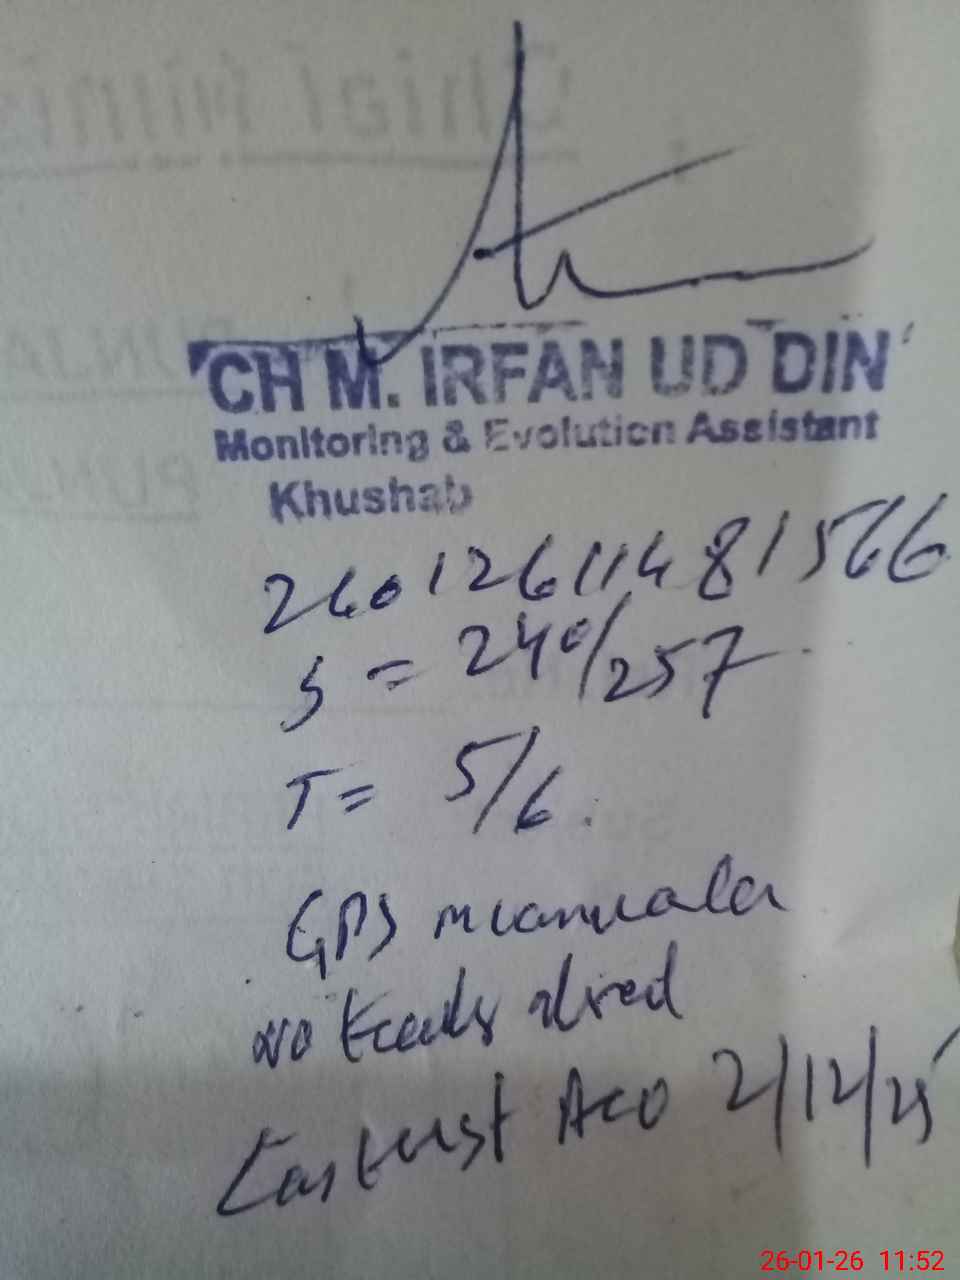 CH M. IRFAN UD DIN
Monitoring & Evolution Assistant
Khushab
26012611481566
S = 240/257
T = 5/6.
GPS
no
Last visit AEO 2/12/25
26-01-26 11:52